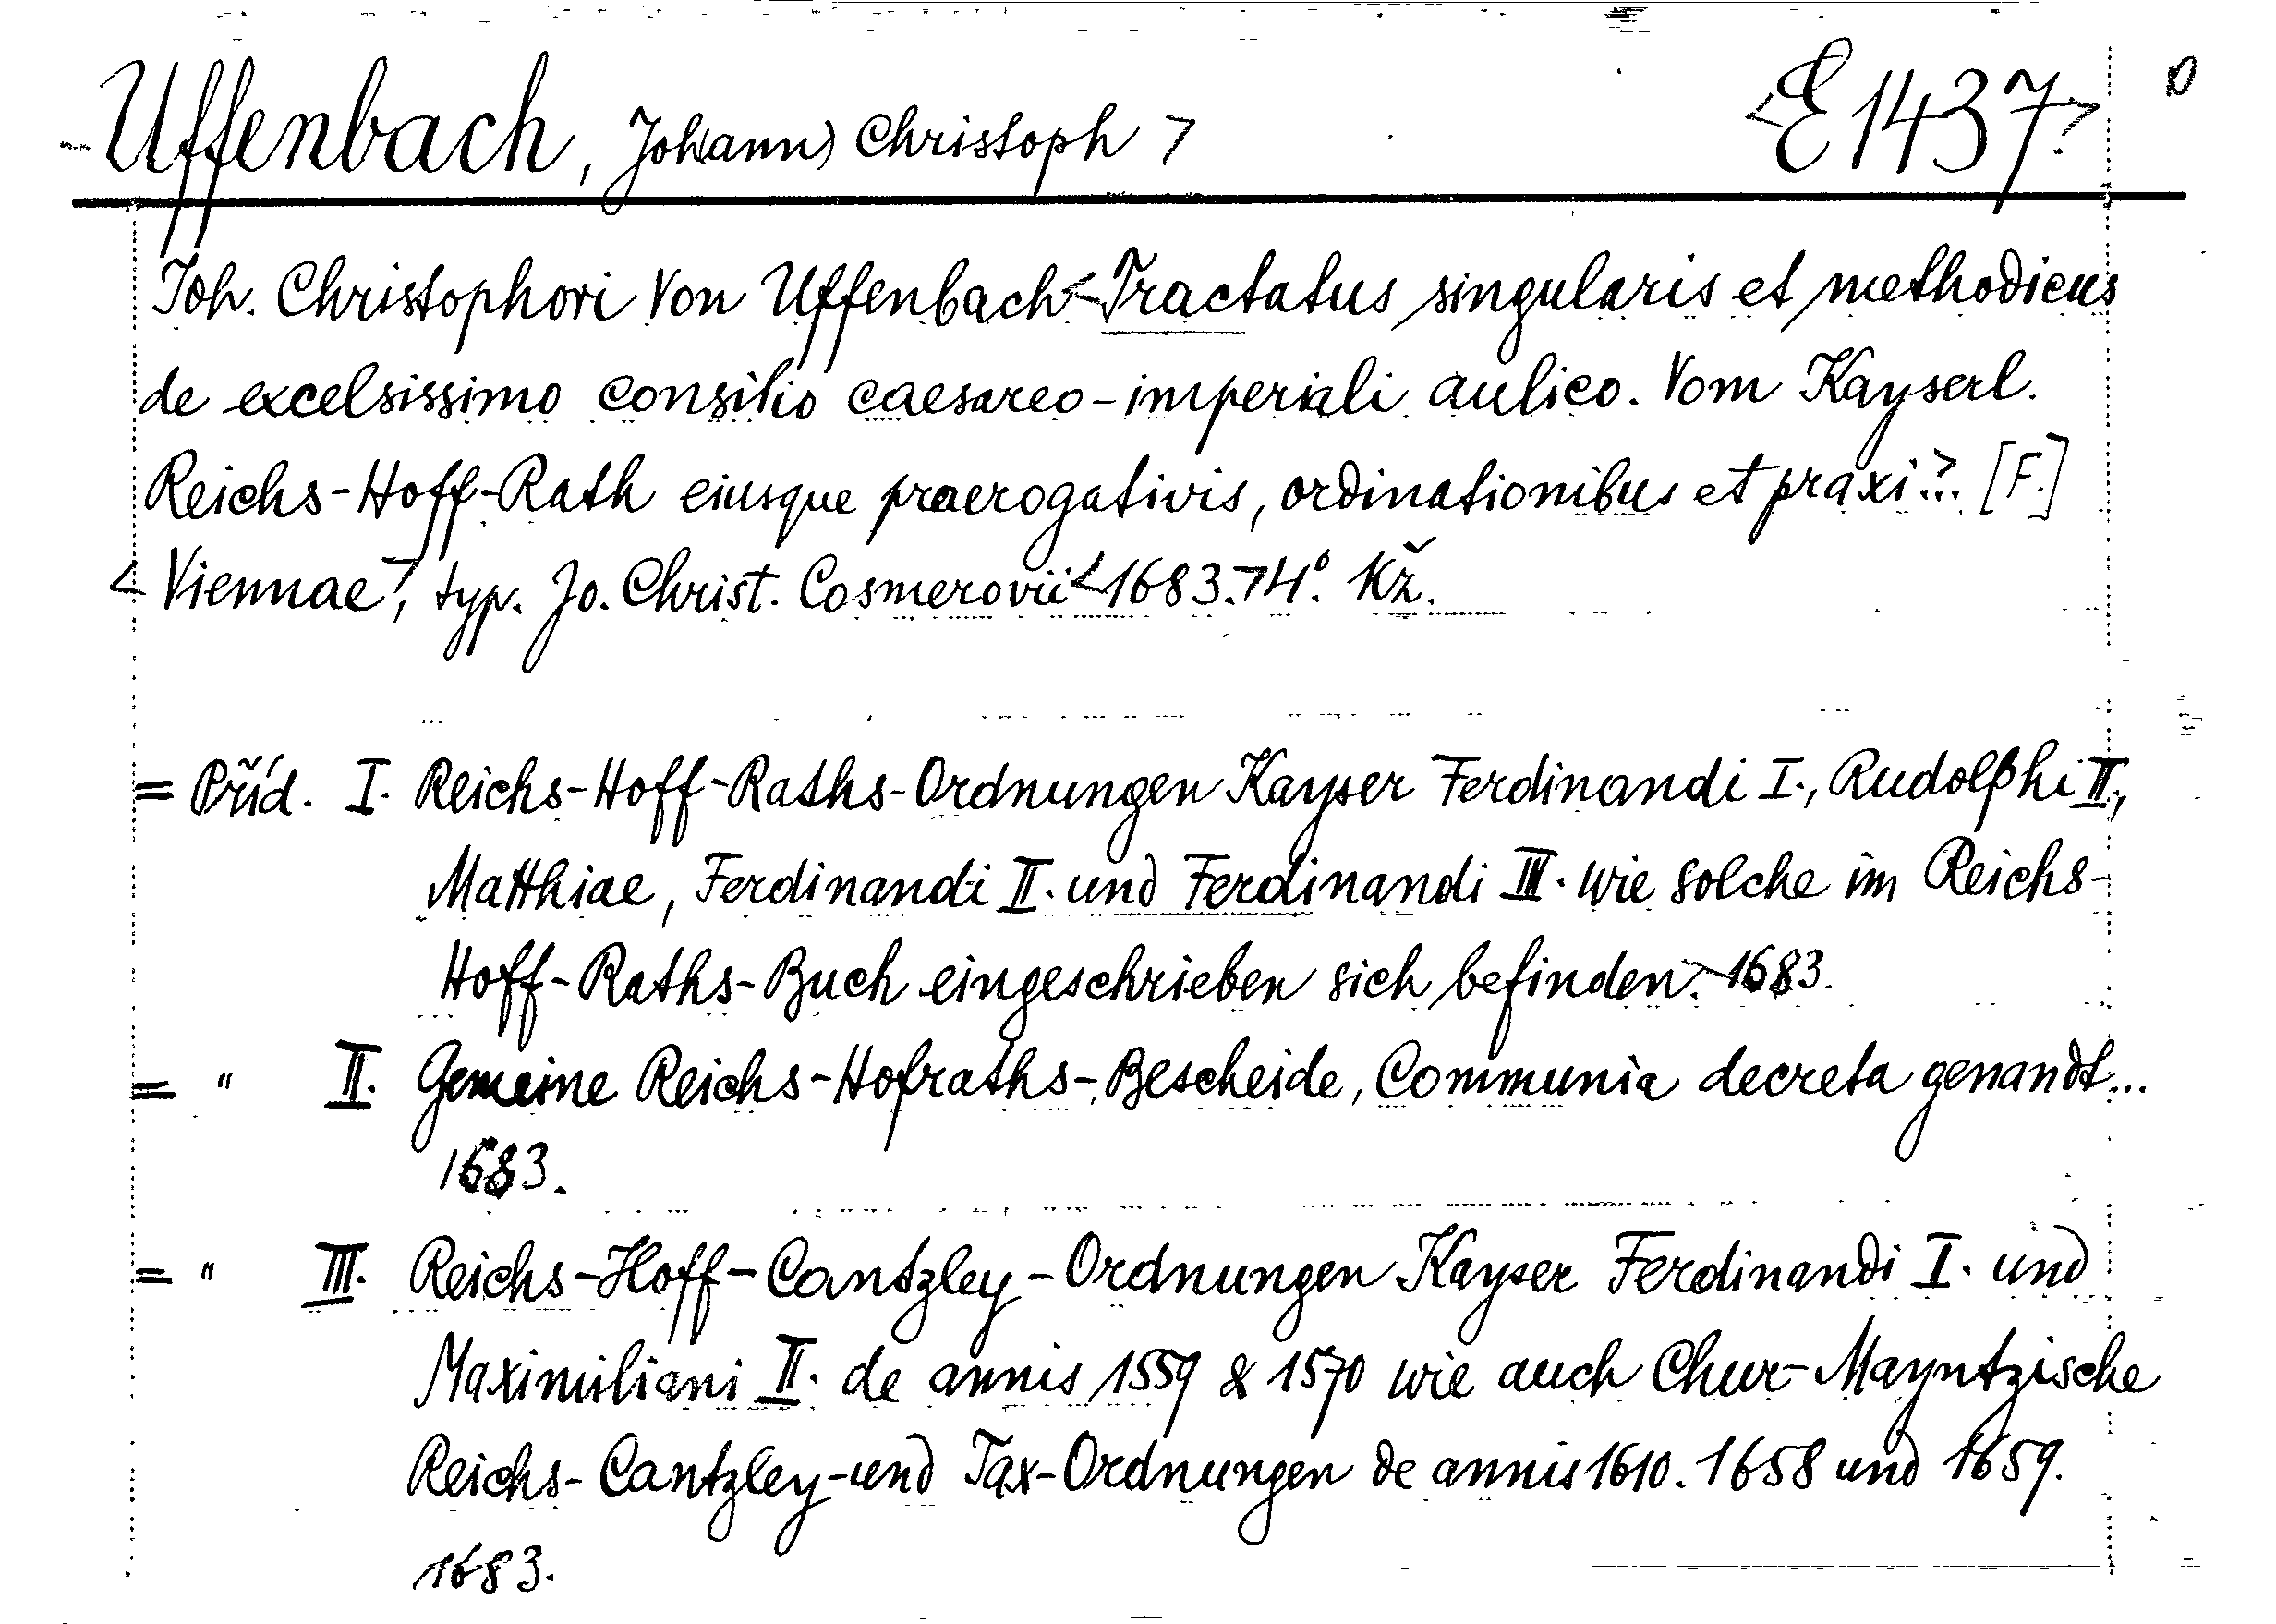 Uffenbach, Joh(ann) Christoph > <E 1437.>
Joh. Christophori Von Uffenbach <Tractatus singularis et methodicus
de excelsissimo consilio caesareo-imperiali aulico. Vom Kayserl.
Reichs-Hoff-Rath eiusque praerogativis, ordinationibus et praxi>... [F.]
<Viennae>, typ. Jo. Christ. Cosmerovii <1683.> 4°. Kž.
= Příd. I. Reichs-Hoff-Raths-Ordnungen Kayser Ferdinandi I., Rudolphi II.,
Matthiae, Ferdinandi II. und Ferdinandi III. wie solche im Reichs-
Hoff-Raths-Buch eingeschrieben sich befinden. 1683.
= " II. Gemeine Reichs-Hofraths-Bescheide, Communia decreta genandt...
1683.
= " III. Reichs-Hoff-Cantzley-Ordnungen Kayser Ferdinandi I. und
Maximiliani II. de annis 1559 & 1570 wie auch Chur-Mayntzische
Reichs-Cantzley-und Tax-Ordnungen de annis 1610. 1658 und 1659.
1683.